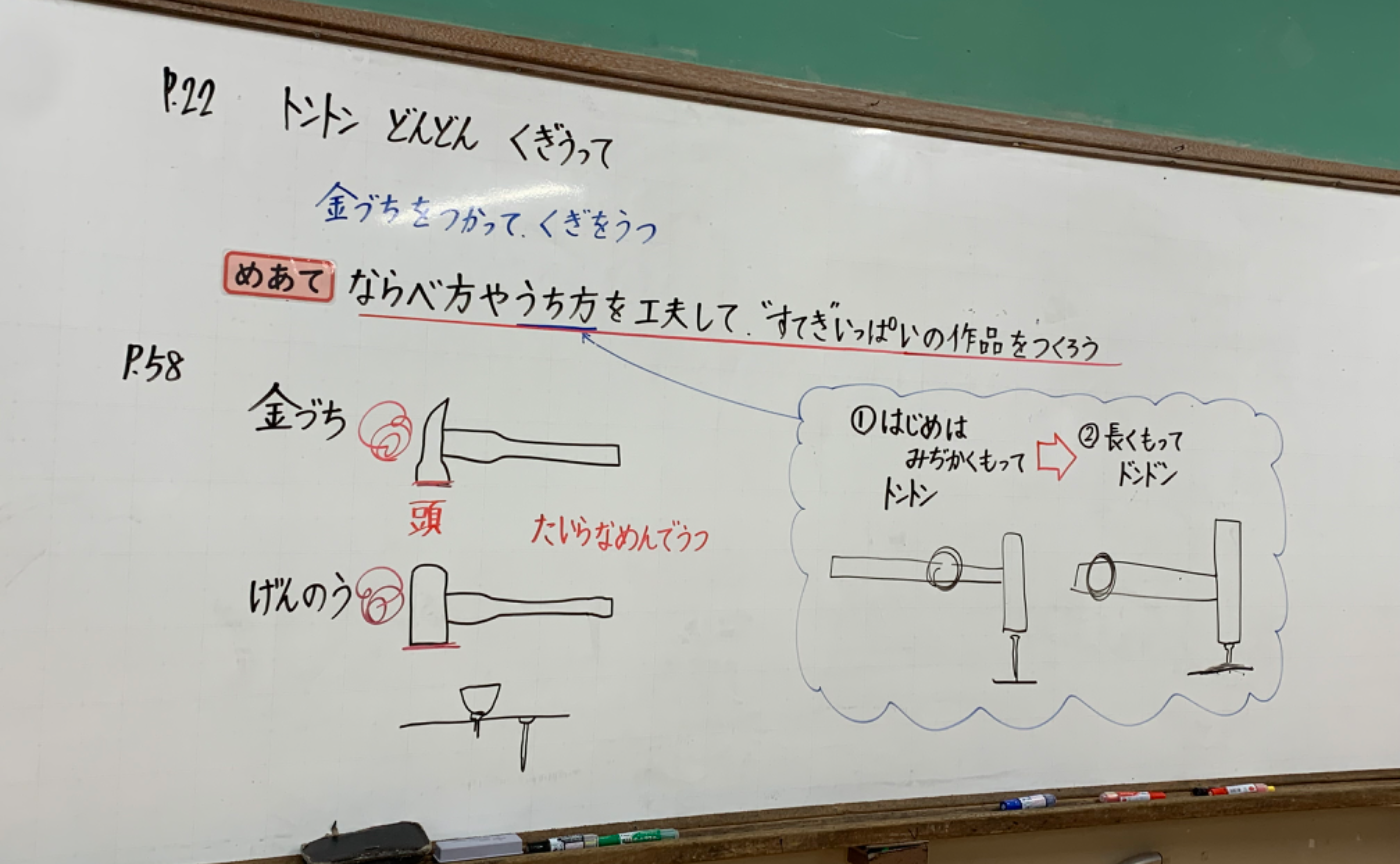 P.22 トントン どんどん くぎうって
金づちをつかって、くぎをうつ
めあて ならべ方やうち方を工夫して、“すてき”いっぱいの作品をつくろう
P.58
金づち
頭
たいらなめんでうつ
げんのう
①はじめは
みぢかくもって
トントン
②長くもって
ドンドン